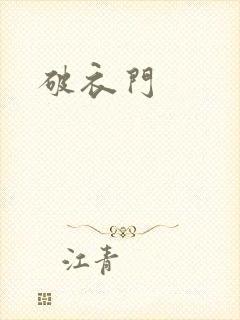 破衣門
江青